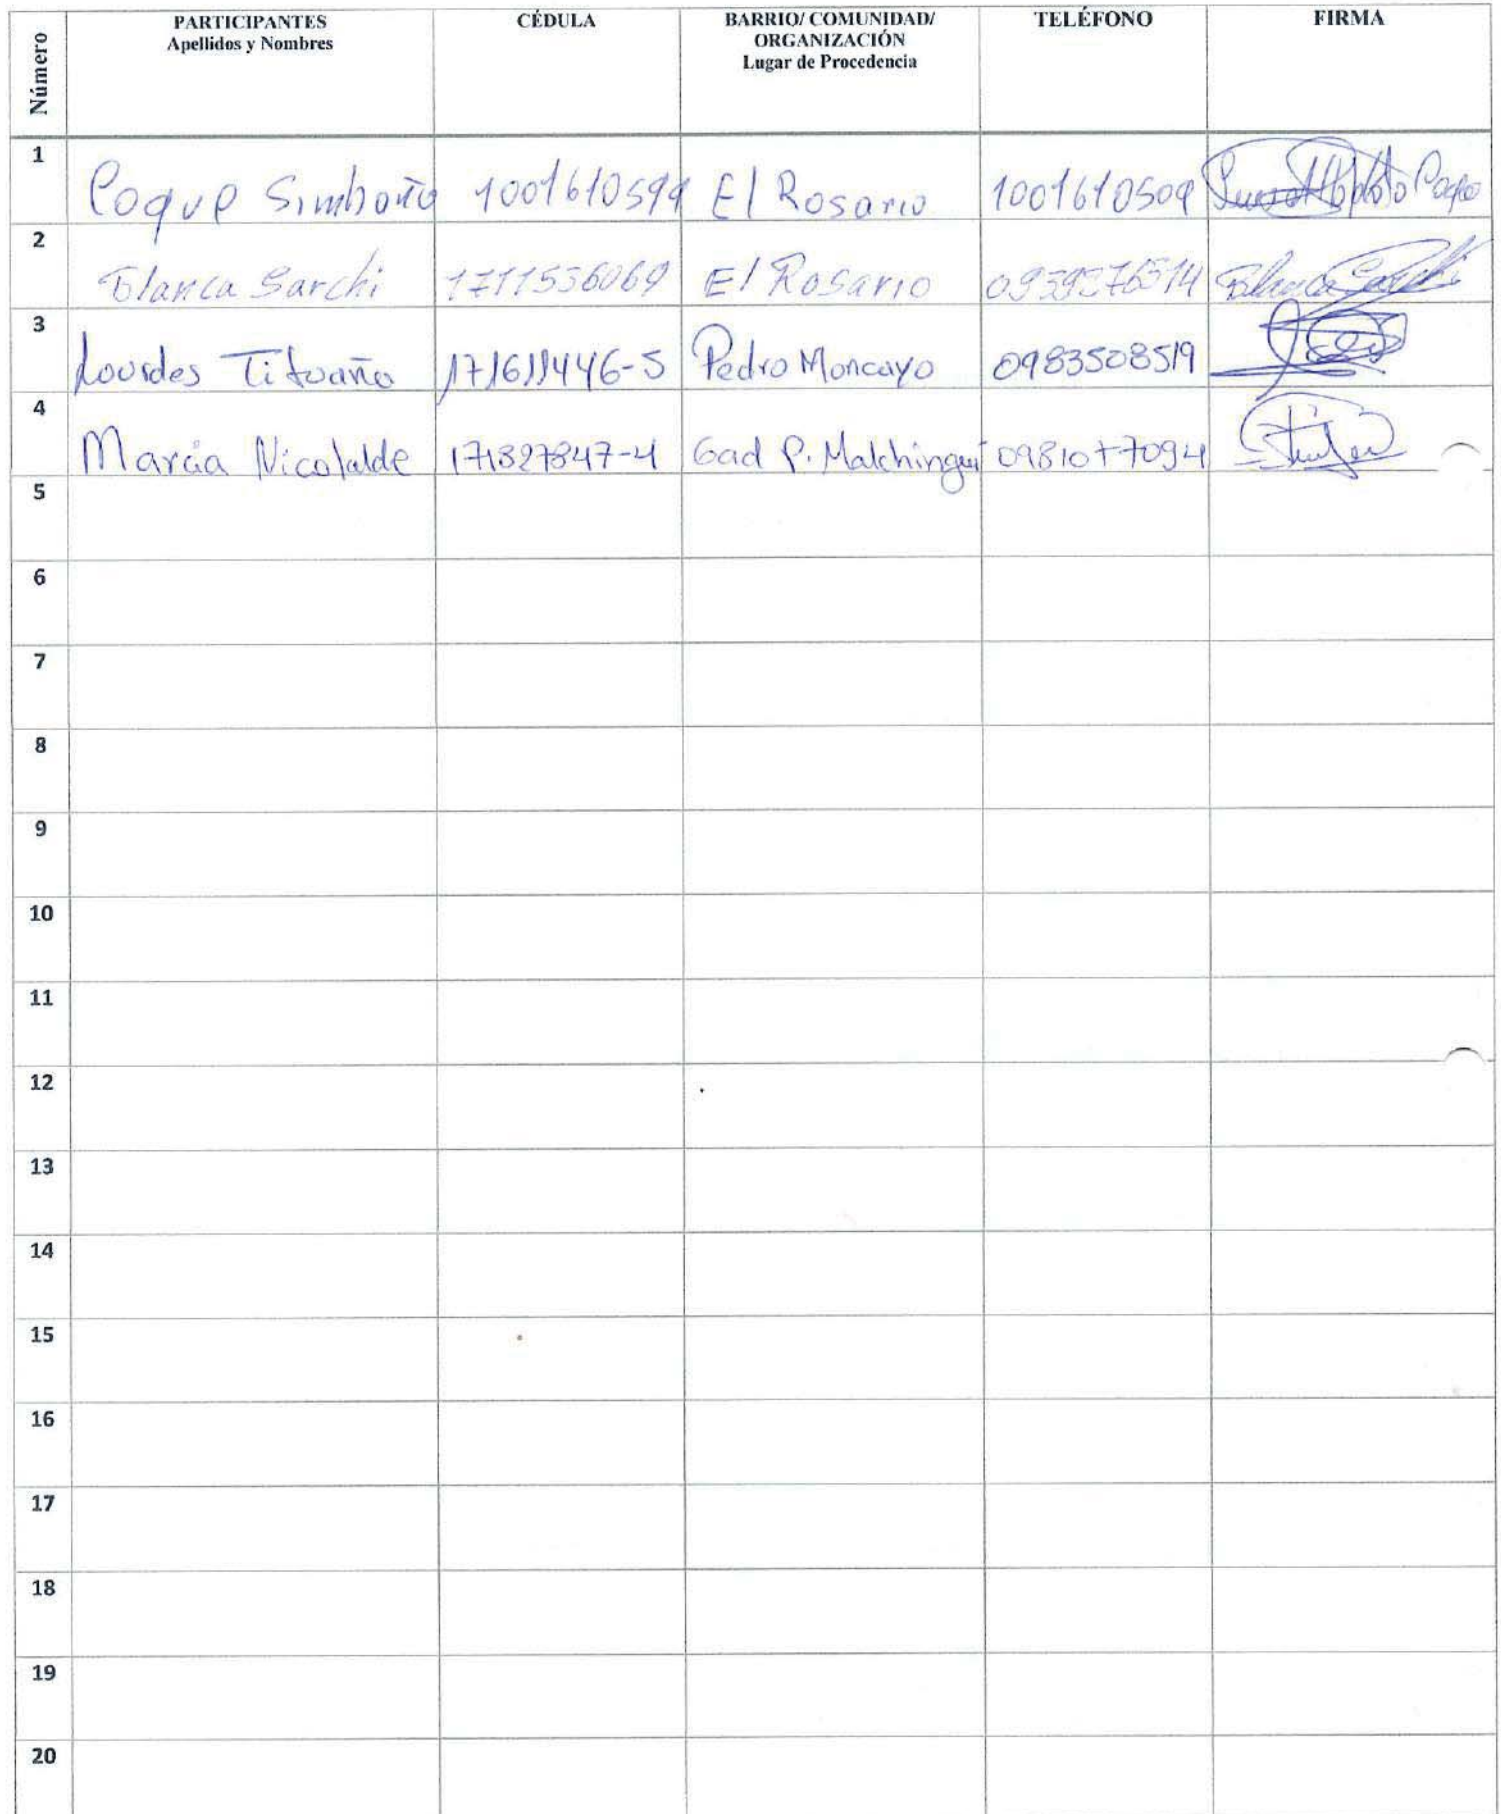 Número PARTICIPANTES CÉDULA BARRIO/ COMUNIDAD/ TELÉFONO FIRMA
Apellidos y Nombres ORGANIZACIÓN
Lugar de Procedencia
1 Poque Simbaña 1001610599 El Rosario 1001610509
2 Blanca Sarchi 1711536069 El Rosario 0939276514 Blanca Sarchi
3 Lourdes Tituaña 171611446-5 Pedro Moncayo 0983508519
4 Marcia Nicolalde 171827847-4 Gad P. Malchingui 0981077094
5
6
7
8
9
10
11
12
13
14
15
16
17
18
19
20